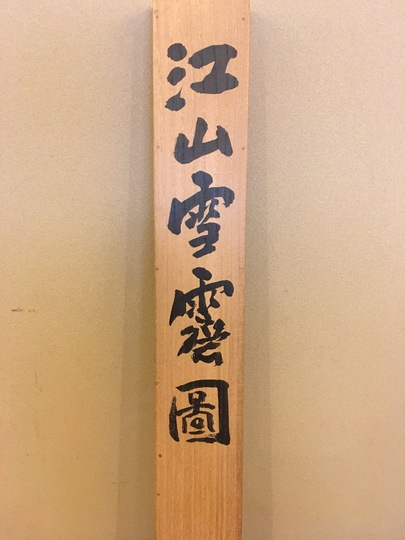 江山雪霽圖